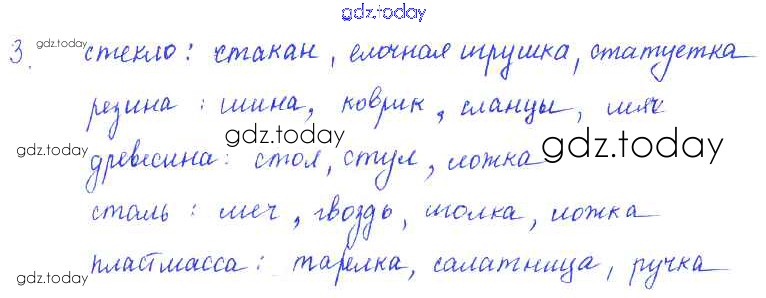 gdz.today
3. gdz.today стекло: стакан, елочная игрушка, статуетка
резина: шина, коврик, сланцы, мяч
gdz.today gdz.today gdz.today
древесина: стол, стул, ложка
сталь: меч, гвоздь, иголка, ложка
gdz.today пластмасса: тарелка, салатница, ручка